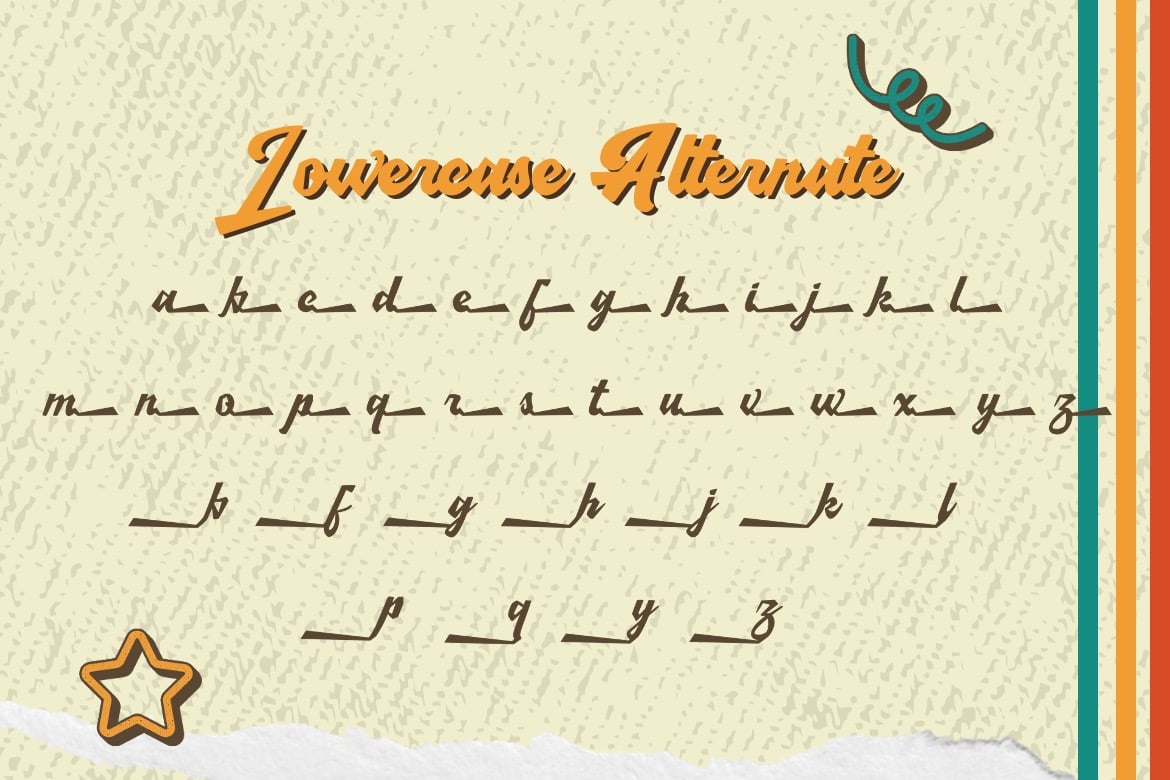 Lowercase Alternate
a b c d e f g h i j k l
m n o p q r s t u v w x y z
b f g h j k l
p q y z